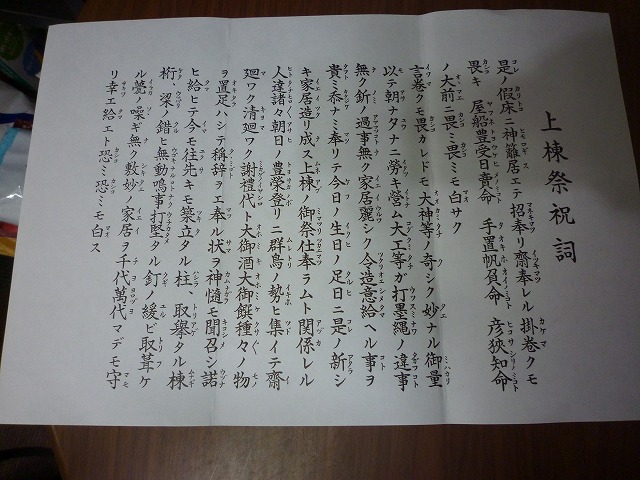 上棟祭祝詞
是ノ假床ニ神籬居エテ招奉リ齋奉レル掛巻クモ
畏キ 屋船豊受日賣命 手置帆負命 彦狹知命
ノ大前ニ畏ミ畏ミモ白サク
言巻クモ畏カレドモ大神等ノ奇シク妙ナル御量
以テ朝ナタナニ勞キ營ム大工等ガ打墨繩ノ違事
無ク釿ノ過事無ク家居麗シク令造意給ヘル事ヲ
貴ミ忝ナミ奉リテ今日ノ生日ノ足日ニ是ノ新シ
キ家居造リ成ス上棟ノ御祭仕奉ラムト關係レル
人達諸々朝日ノ豊榮登リニ群鳥ノ勢ヒ集イテ齋
廻ワク清廻ワク謝禮代ト大御酒大御饌種々ノ物
ヲ置足ハシテ稱辞ヲエ奉ル状ヲ神隨モ聞召シ諾
ヒ給ヒテ今モ往先キモ築立タル柱 取擧タル棟
桁 梁ノ錯ヒ無動鳴事打堅タル釘ノ緩ビ取葺ケ
ル甍ノ噪ギ無ク敷妙ノ家居ヲ千代萬代マデモ守
リ幸エ給エト恐ミ恐ミモ白ス